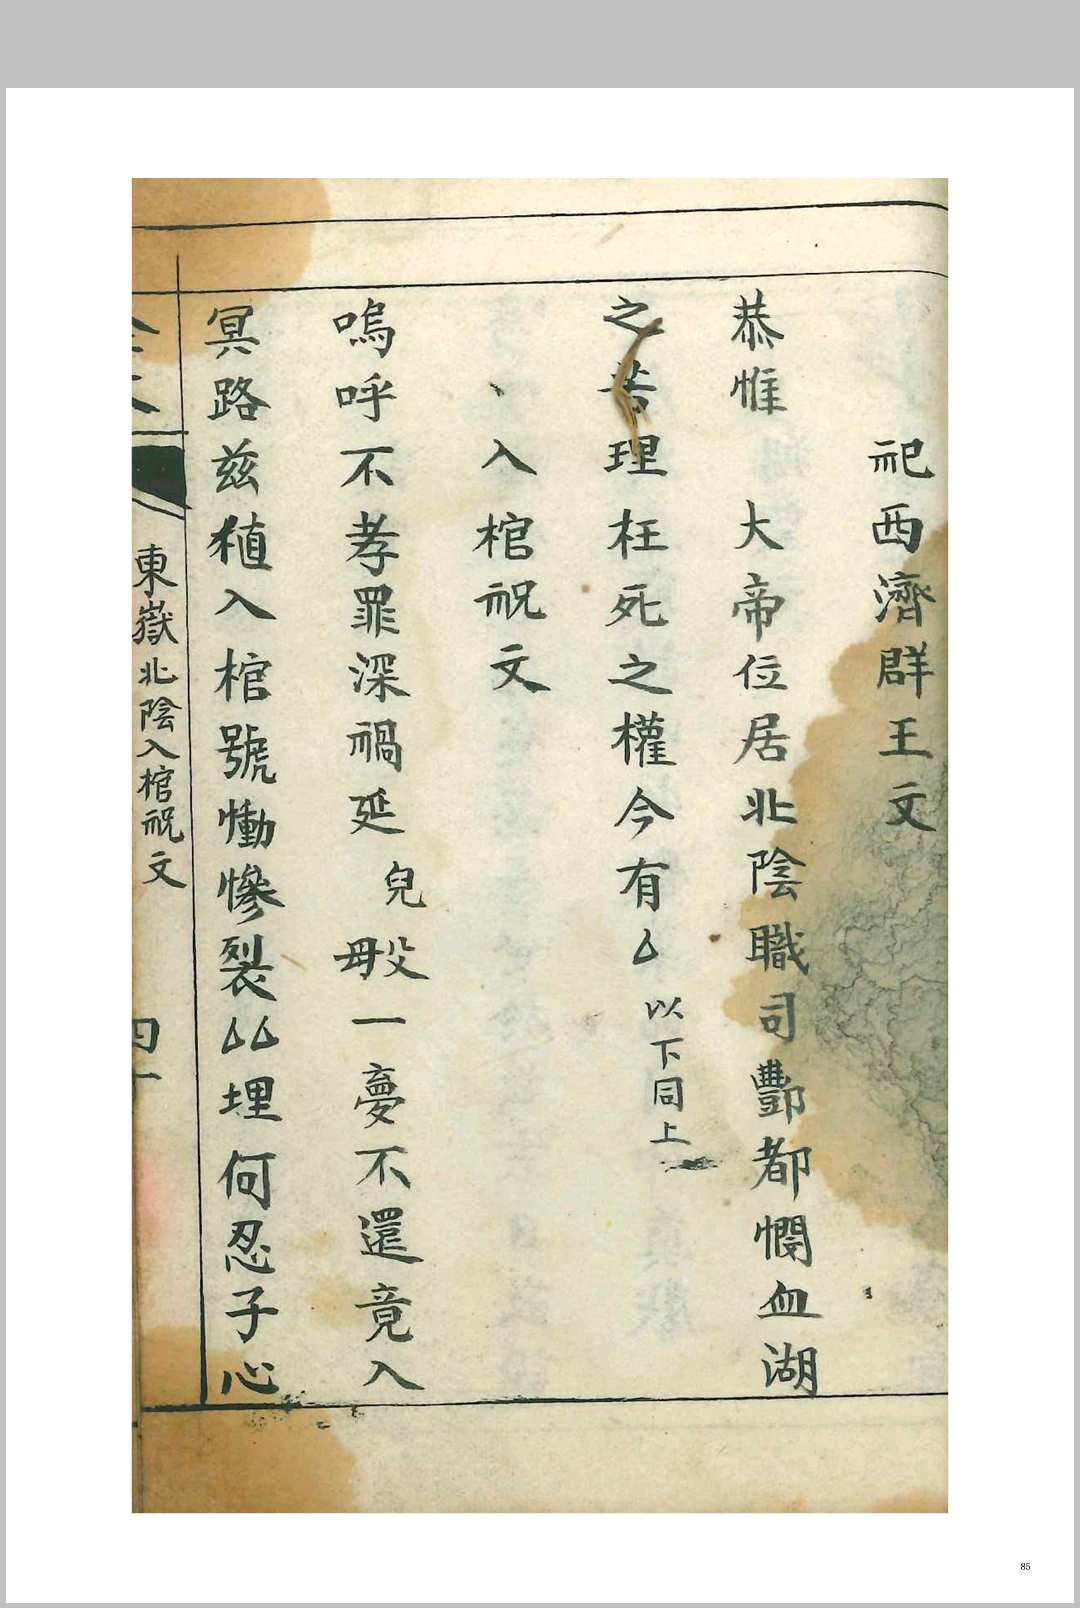 祀西濟群王文
恭惟 大帝位居北陰職司酆都憫血湖
之苦理枉死之權今有厶以下同上
、入棺祝文
嗚呼不孝罪深禍延 兒母父一夢不還竟入
冥路兹值入棺號慟慘裂厶厶埋何忍子心
東嶽北陰入棺祝文
四十
85